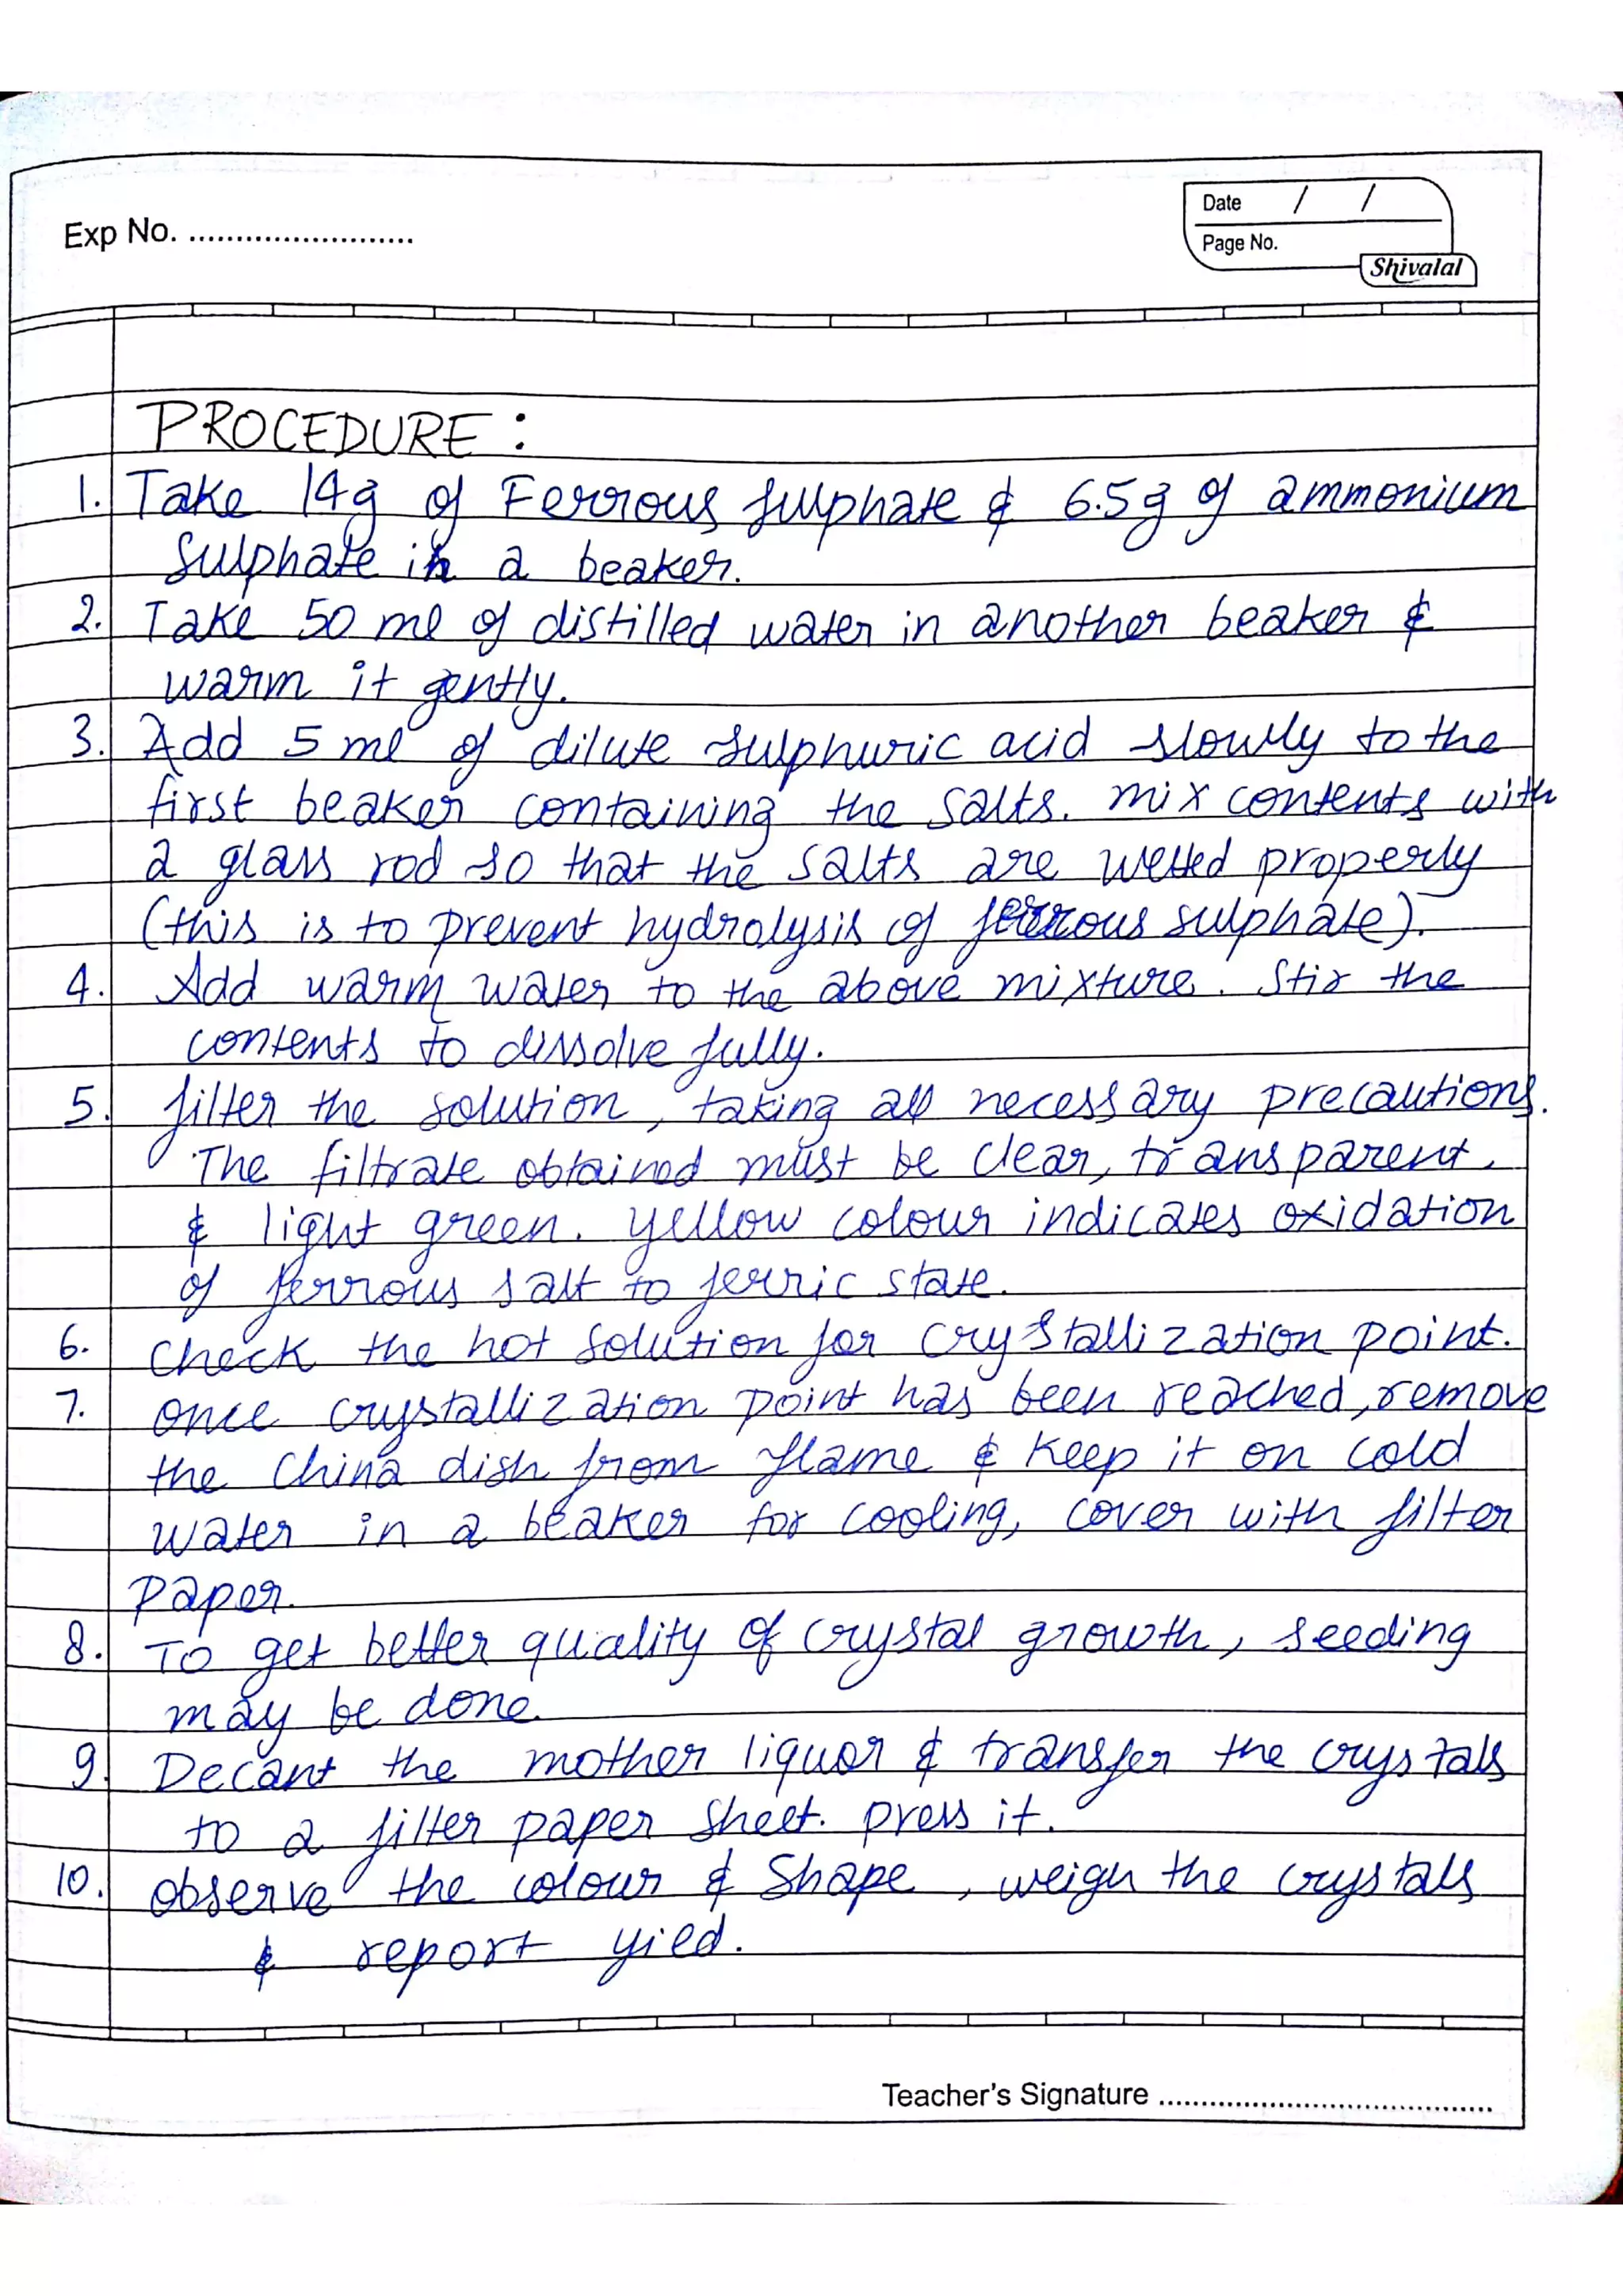 Exp No. ........................
Date / /
Page No.
Shivalal
PROCEDURE :
1. Take 14g of Ferrous sulphate & 6.5g of ammonium
sulphate in a beaker.
2. Take 50 ml of distilled water in another beaker &
warm it gently.
3. Add 5 ml of dilute sulphuric acid slowly to the
first beaker containing the salts. mix contents with
a glass rod so that the salts are wetted properly
(this is to prevent hydrolysis of ferrous sulphate).
4. Add warm water to the above mixture. Stir the
contents to dissolve fully.
5. filter the solution, taking all necessary precautions.
The filtrate obtained must be clear, transparent,
& light green. yellow colour indicates oxidation
of ferrous salt to ferric state.
6. Check the hot solution for crystallization point.
7. once crystallization point has been reached, remove
the China dish from flame & keep it on cold
water in a beaker for cooling, cover with filter
paper.
8. To get better quality of crystal growth, seeding
may be done.
9. Decant the mother liquor & transfer the crystals
to a filter paper sheet. press it.
10. observe the colour & shape, weigh the crystals
& report yied.
Teacher's Signature ........................................